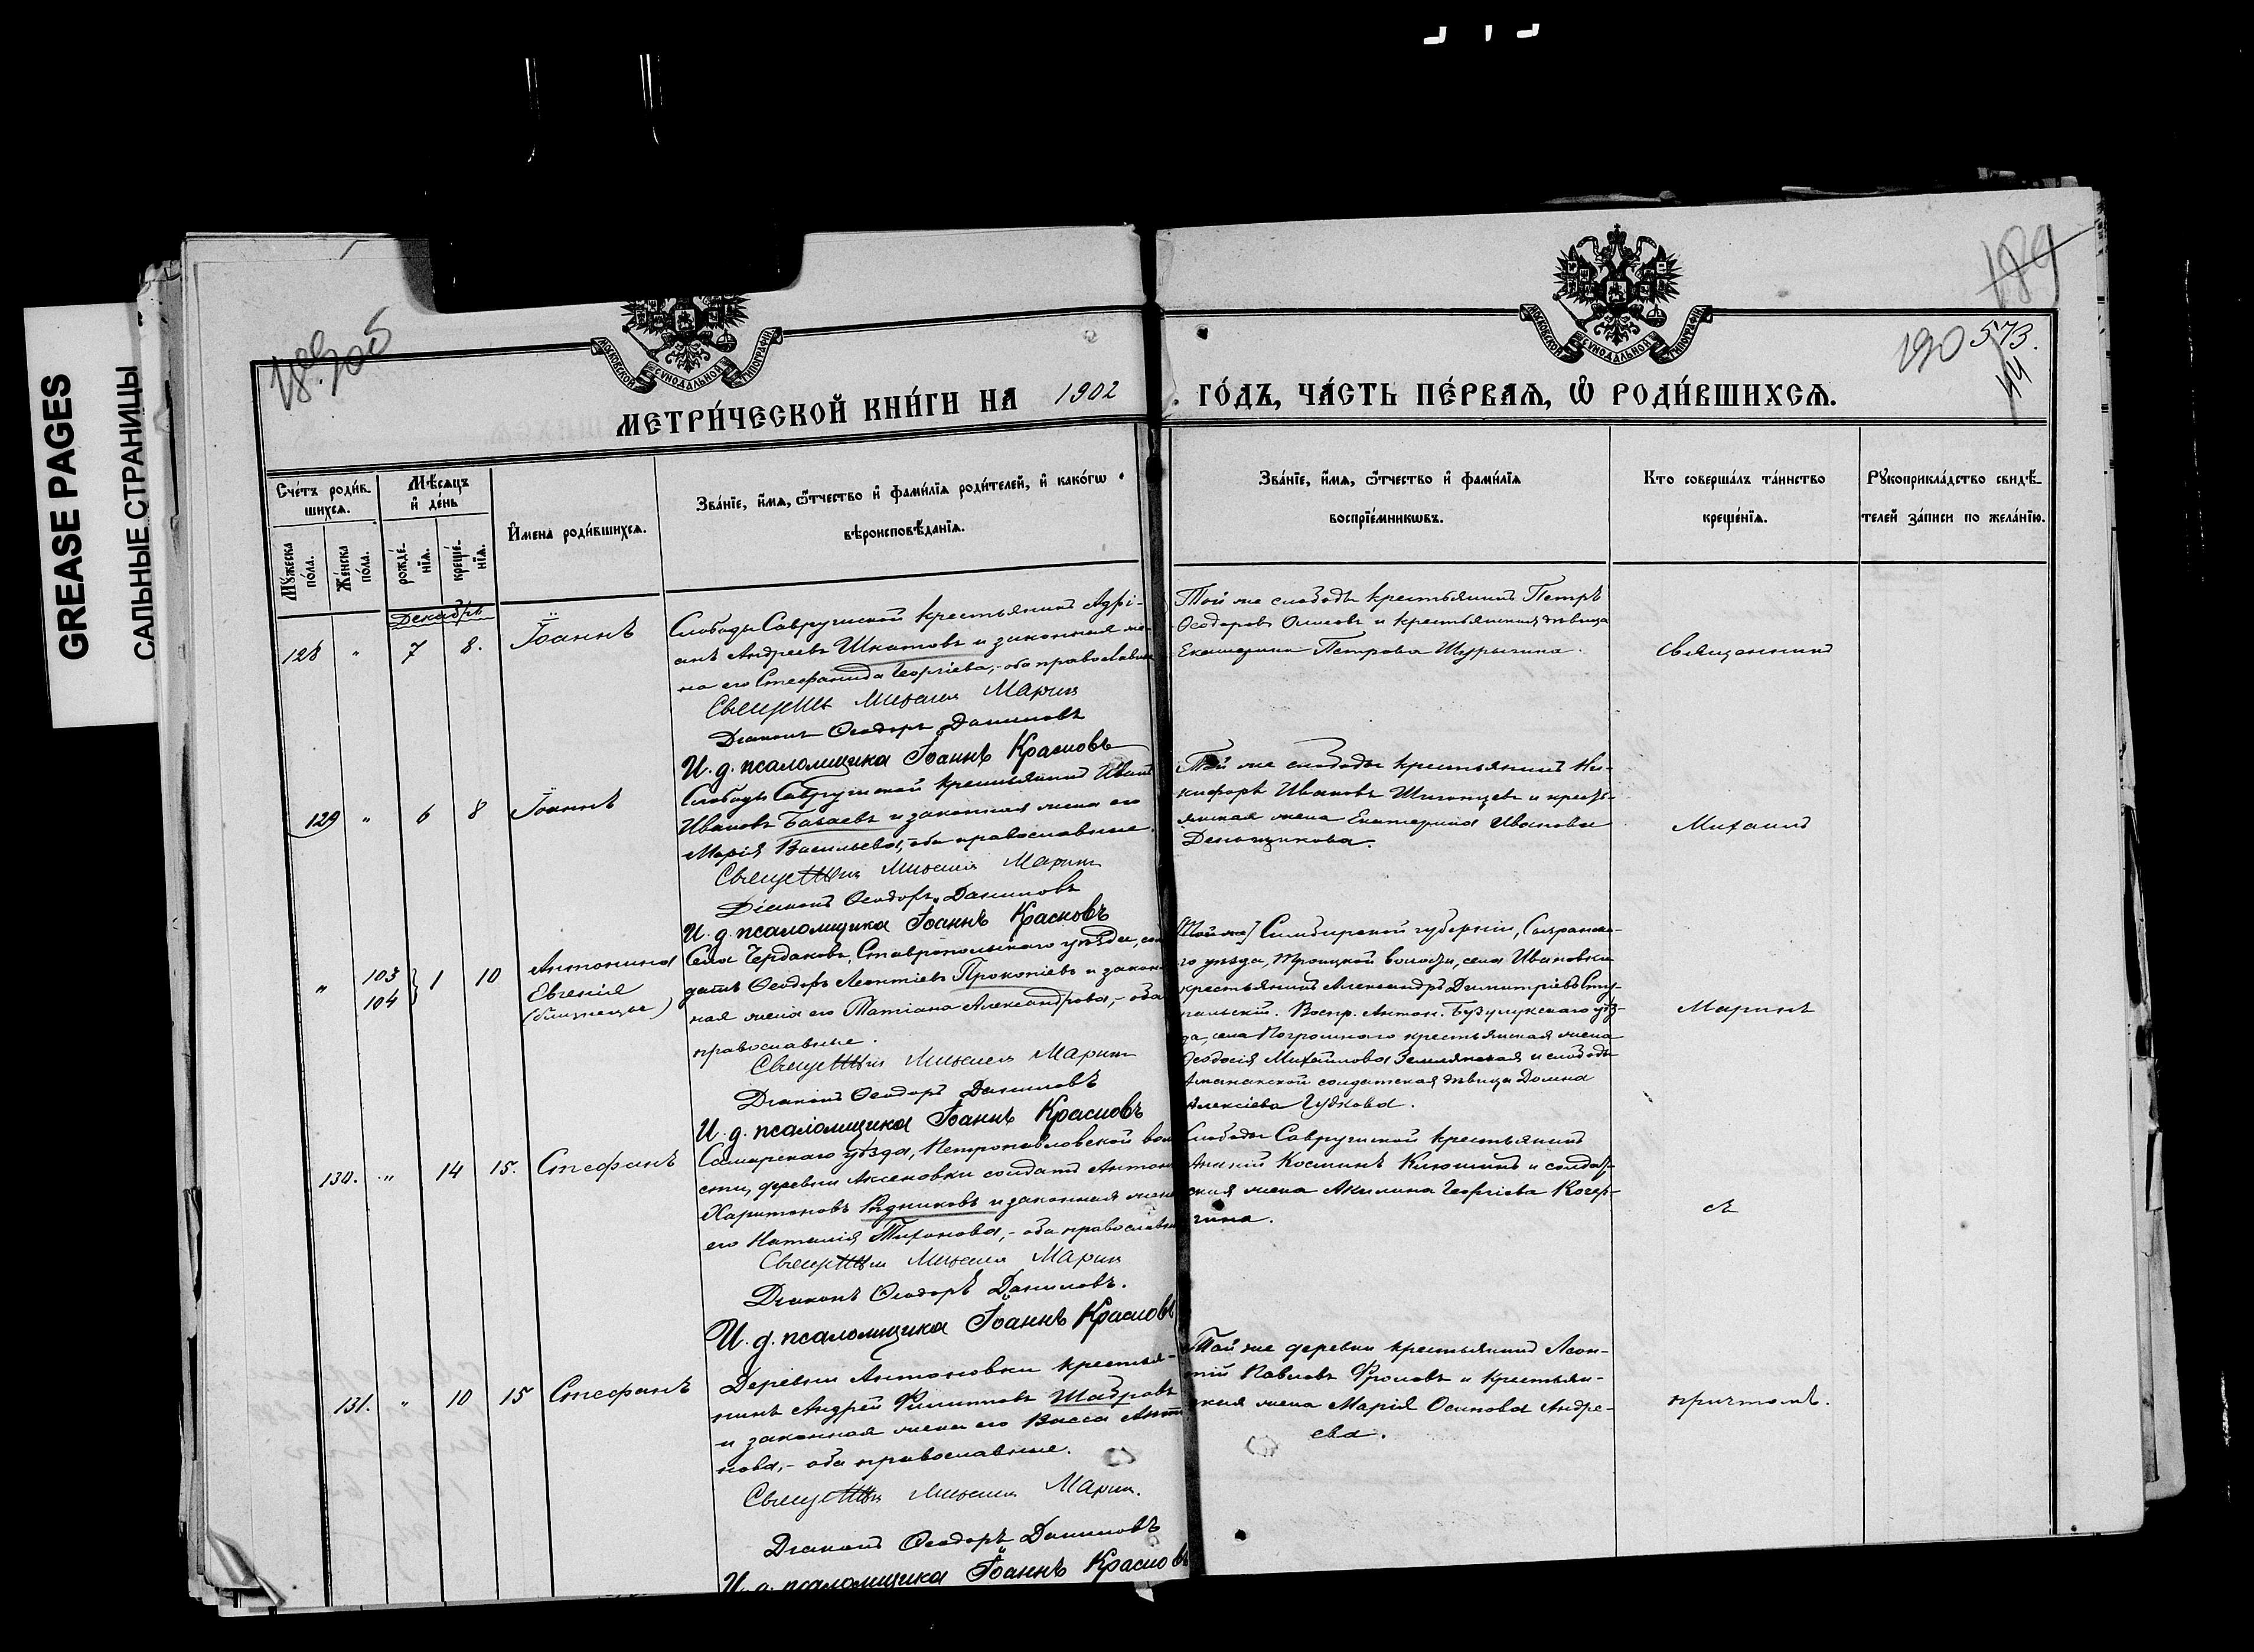 GREASE PAGES
САЛЬНЫЕ СТРАНИЦЫ
189
190 573.
МОСКОВСКОЙ СѴНОДАЛЬНОЙ ТИПОГРАФІИ
МОСКОВСКОЙ СѴНОДАЛЬНОЙ ТИПОГРАФІИ
МЕТРИ́ЧЕСКОЙ КНИ́ГИ НА 1902 ГО́ДЪ, ЧА́СТЬ ПЕ́РВАЯ, Ѽ РОДИ́ВШИХСЯ.
Сче́тъ роди́в-
шихся.
Мѣ́сяцъ
и҆ де́нь
Му́жеска
по́ла.
Же́нска
по́ла.
рожде́-
нїя.
креще́-
нїя.
И҆мена̀ роди́вшихся.
Зва́нїе, и҆́мя, ѻ҆́тчество и҆ фами́лїя роди́телей, и҆ како́гѡ
вѣроисповѣ́данїя.
Зва́нїе, и҆́мя, ѻ҆́тчество и҆ фами́лїя
воспрїе́мникѡвъ.
Кто соверша́лъ та́инство
креще́нїя.
Рꙋкоприкла́дство свидѣ́-
телей за́писи по жела́нїю.
Декабрь
128 " 7 8. Іоаннъ
Слободы Савружской крестьянинъ Адрі-
анъ Андреевъ Шкатовъ и законная же-
на его Стефанида Георгіева,- оба православн
Священникъ Михаилъ Маринъ
Діаконъ Ѳеодоръ Даниловъ
И. д. псаломщика Іоаннъ Красновъ
Той же слободы крестьянинъ Петръ
Ѳеодоровъ и крестьянская дѣвица
Екатерина Петрова Шурыгина.
Священникъ
129 " 6 8 Іоаннъ
Слободы Савружской крестьянинъ Иванъ
Ивановъ Бабаевъ и законная жена его
Марія Васильева, оба православные.
Священникъ Михаилъ Маринъ
Діаконъ Ѳеодоръ Даниловъ
И. д. псаломщика Іоаннъ Красновъ
Той же слободы крестьянинъ Ни-
кифоръ Ивановъ и кресть-
янская жена Екатерина Иванова
Деньщикова.
Михаилъ
" 103 104 } 1 10 Антонина
Евгенія
(близнецы)
Села Чердаковъ, Ставропольскаго уѣзда, сол
датъ Ѳеодоръ Леонтіевъ Прокопіевъ и закон
ная жена его Татіана Александрова,- оба
православные.
Священникъ Михаилъ Маринъ
Діаконъ Ѳеодоръ Даниловъ
И. д. псаломщика Іоаннъ Красновъ
[Той же] Симбирской губерніи, Сызранска-
го уѣзда, Троицкой волости, села Ивановки
крестьянинъ Александръ Димитріевъ Сту-
пальскій. Воспр. Антон. Бузулукскаго уѣз-
да, села Погромнаго крестьянская жена
Ѳеодосія Михайлова Землянская и слободы
солдатская дѣвица Домна
Алексіева Гудкова.
Маринъ
130. " 14 15. Стефанъ
Самарскаго уѣзда, Петропавловской вол
сти, деревни Аксеновки солдатъ Антон
Харитоновъ Рудниковъ и законная жена
его Наталія Тихонова,- оба православн
Священникъ Михаилъ Маринъ
Діаконъ Ѳеодоръ Даниловъ.
И. д. псаломщика Іоаннъ Красновъ
Слободы Савружской крестьянинъ
Ананій Косминъ Клюшинъ и солдат-
ская жена Акилина Георгіева Кочер-
гина.
съ
131. " 10 15 Стефанъ
Деревни Антоновки крестья-
нинъ Андрей Филипповъ Шабровъ
и законная жена его Васса Анто
нова,- оба православные.
Священникъ Михаилъ Маринъ.
Діаконъ Ѳеодоръ Даниловъ
И. д. псаломщика Іоаннъ Красновъ
Той же деревни крестьянинъ Леон-
тій Павловъ Фроловъ и крестьян-
ская жена Марія Осипова Андре-
ева.
причтомъ.